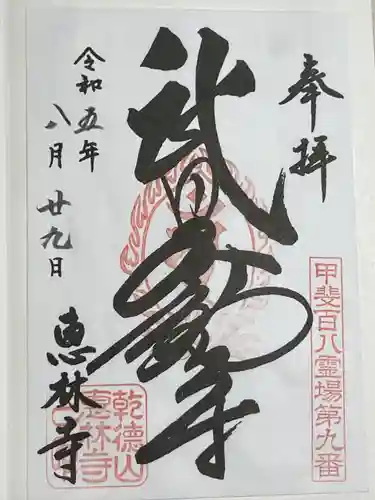 奉拝
甲斐百八霊場第九番
武田不動尊
令和五年
八月廿九日
恵林寺
乾德山
恵林寺